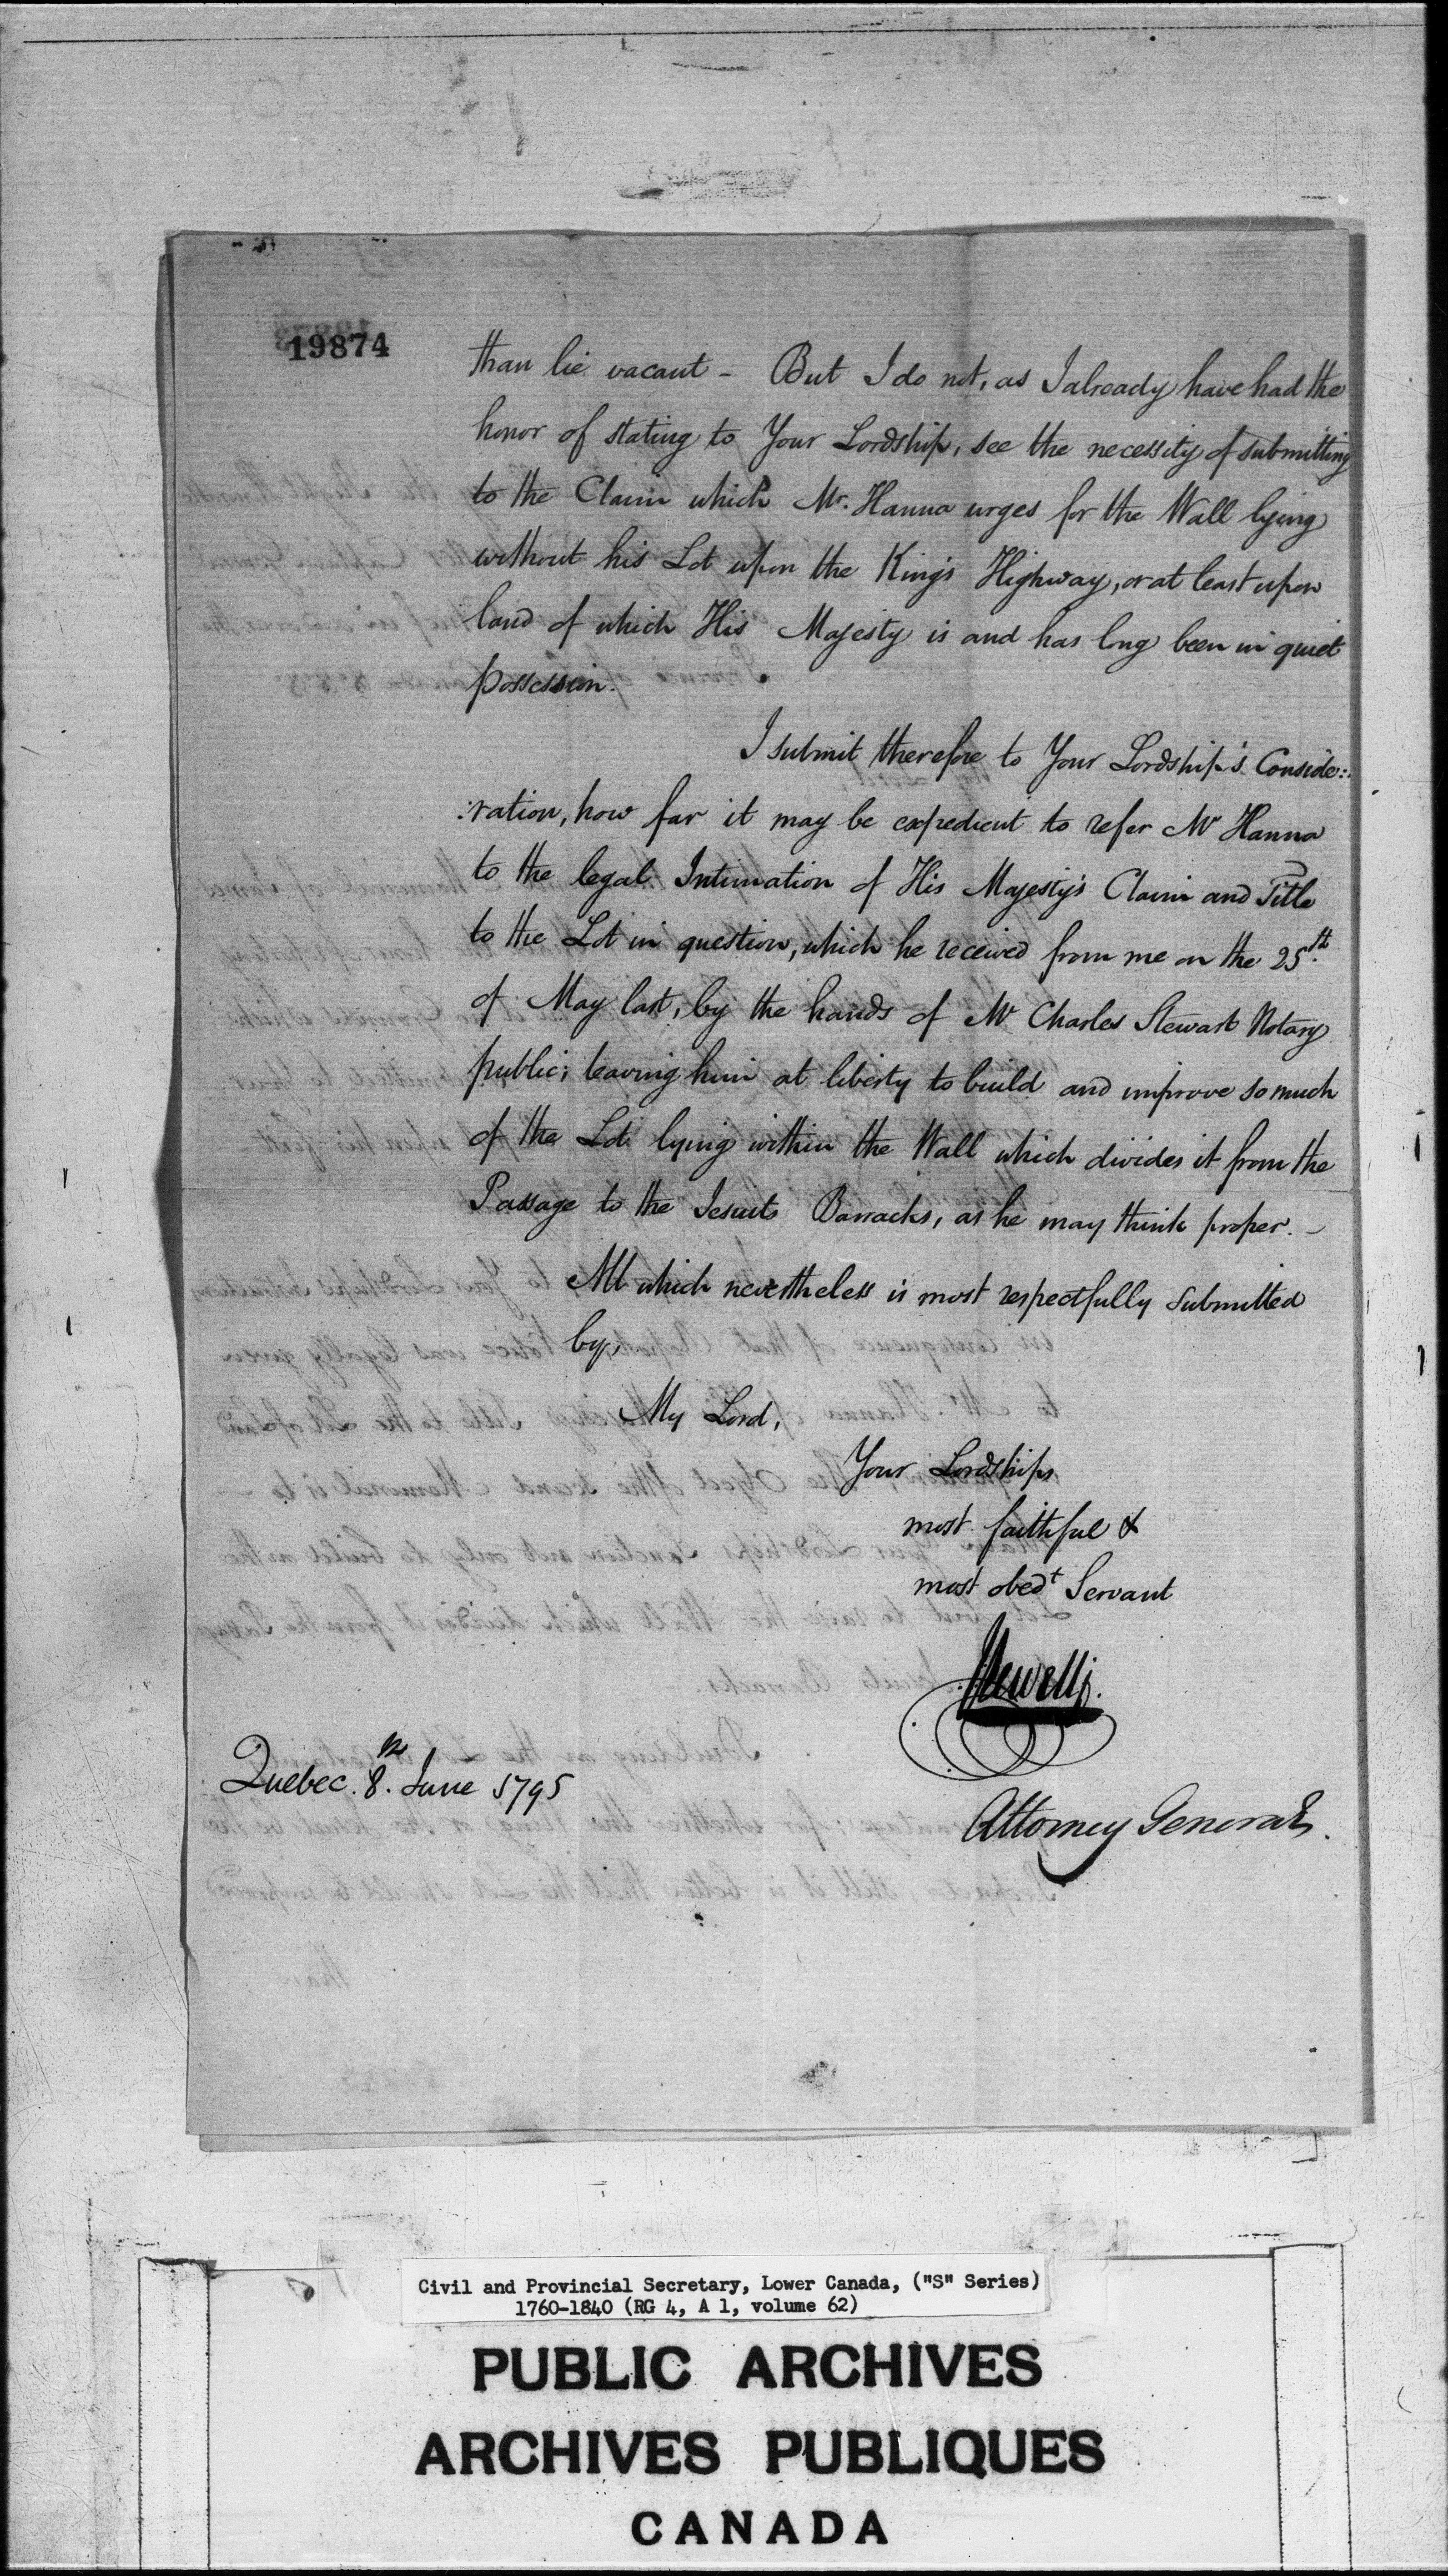 19874
than lie vacant - But I do not, as I already have had the
honor of stating to Your Lordship, see the necessity of submitting
to the Claim which Mr. Hanna urges for the Wall lying
without his Lot upon the King's Highway, or at least upon
land of which His Majesty is and has long been in quiet
possession.
I submit therefore to Your Lordship's Conside:
:ration, how far it may be expedient to refer Mr Hanna
to the legal Intimation of His Majesty's Claim and Title
to the Lot in question, which he received from me on the 25th.
of May last, by the hands of Mr Charles Stewart Notary
public; leaving him at liberty to build and improve so much
of the Lot lying within the Wall which divides it from the
Passage to the Jesuits Barracks, as he may think proper. -
All which nevertheless is most respectfully submitted
by,
My Lord,
Your Lordships
most faithful &
most obedt Servant
JSewell
Attorney General.
Quebec. 8.th June 1795
Civil and Provincial Secretary, Lower Canada, ("S" Series)
1760-1840 (RG 4, A 1, volume 62)
PUBLIC ARCHIVES
ARCHIVES PUBLIQUES
CANADA